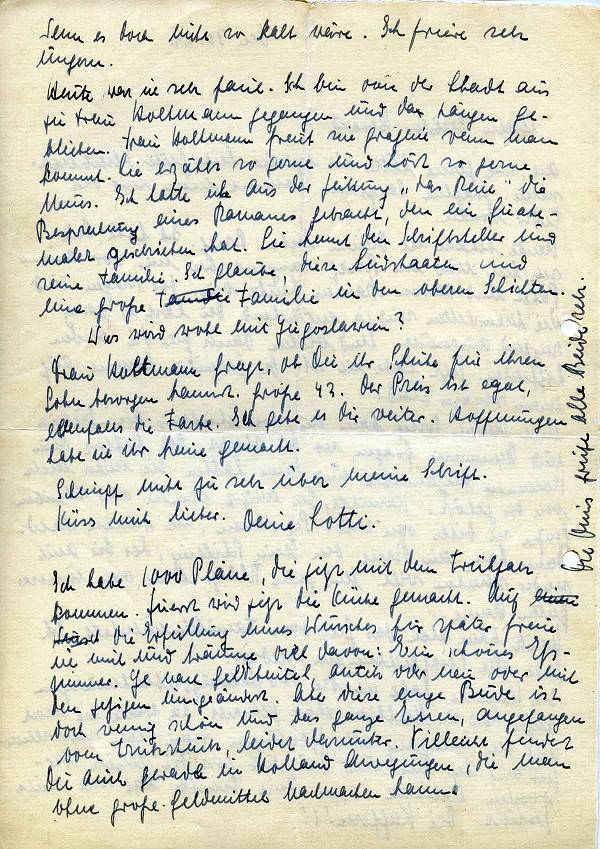 Wenn es doch nicht so kalt wäre. Ich friere sehr
ungern.
Heute war ich sehr faul. Ich bin von der Stadt aus
zu Frau Holtmann gegangen und da hängen ge-
blieben. Frau Holtmann freut sich wenn man
kommt. Sie erzählt so gerne und hört so gerne
Neues. Ich hatte ihr aus der Zeitung „das Reich" die
Besprechung eines Romanes gebracht, den ein Guate-
malar geschrieben hat. Sie kennt den Schriftsteller und
seine Familie. Ich glaube, diese Südstaaten sind
eine große Familie in den oberen Schichten.
Was wird wohl mit Jugoslawien?
Frau Holtmann fragt, ob Du ihr Schuhe für ihren
Sohn besorgen kannst. Größe 43. Der Preis ist egal,
ebenfalls die Farbe. Ich gebe es Dir weiter. Hoffnungen
habe ich ihr keine gemacht.
Schimpf nicht zu sehr über meine Schrift.
Küss mich lieber. Deine Lotti.
Ich habe 1000 Pläne, die jetzt mit dem Frühjahr
kommen. Zuerst wird jetzt die Küche gemacht. Auf
die Erfüllung eines Wunsches für später freue
ich mich und träume viel davon: Ein schönes Eß-
zimmer. Je nach Geldbeutel, antik oder neu oder mit
den jetzigen umgeändert. Aber diese enge Bude ist
doch wenig schön und das ganze Essen, angefangen
vom Frühstück, leidet darunter. Vielleicht findest
Du auch gerade in Holland Anregungen, die man
ohne große Geldmittel nachmachen kann.
alle Beide sehr.